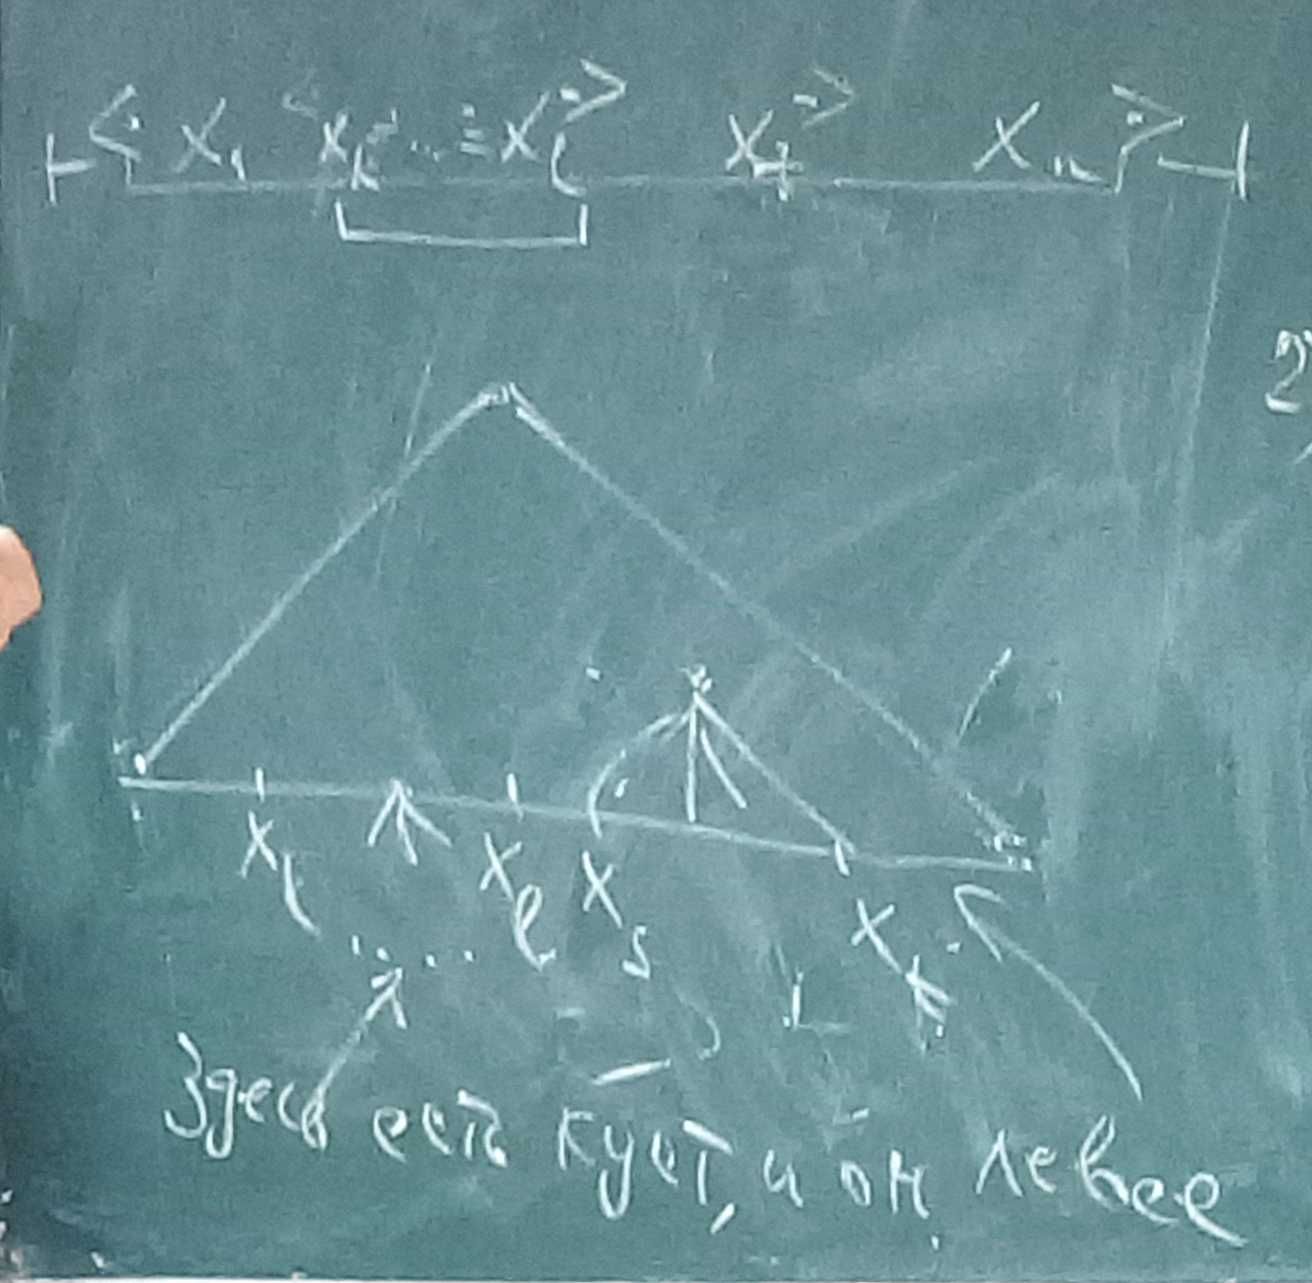 ⊢ <· x₁ <· xₖ ≐ ... ≐ xₗ ·> xₜ ·> xₙ ·> ⊣
2
xᵢ ... xₗ xₛ xₜ
Здесь есть куст, и он левее